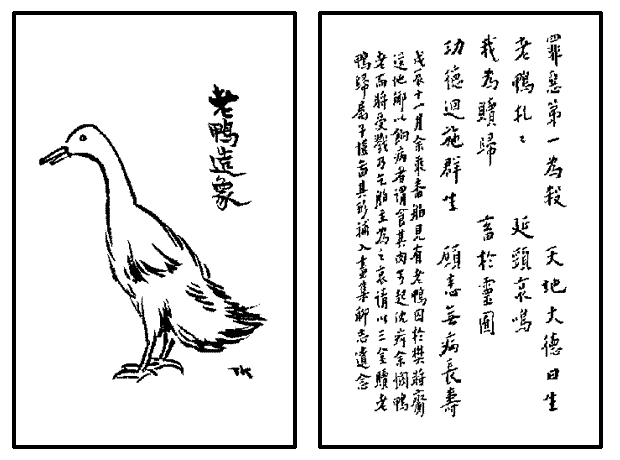 老鴨造象
TK
罪惡第一為殺 天地大德曰生
老鴨札〻 延頸哀鳴
我為贖歸 畜於靈囿
功德迴施群生 願悉無病長壽
戊辰十一月余乘番舶見有老鴨囚於樊將齎
送他鄉以餉病者謂食其肉可起沈痾余憫鴨
老而將受戮乃乞舶主為之哀請以三金贖老
鴨歸屬子愷圖其形補入畫集聊志遺念